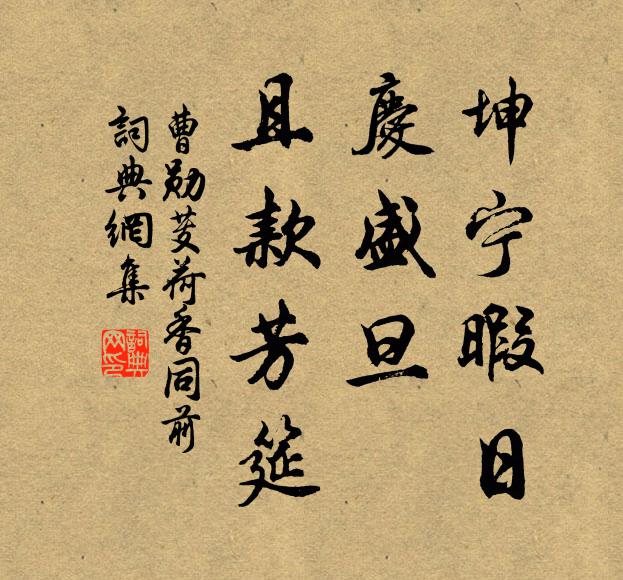 坤宁暇日
慶盛旦
且款芳筵
曹勋芰荷香同前
詞典網集
詞典网印